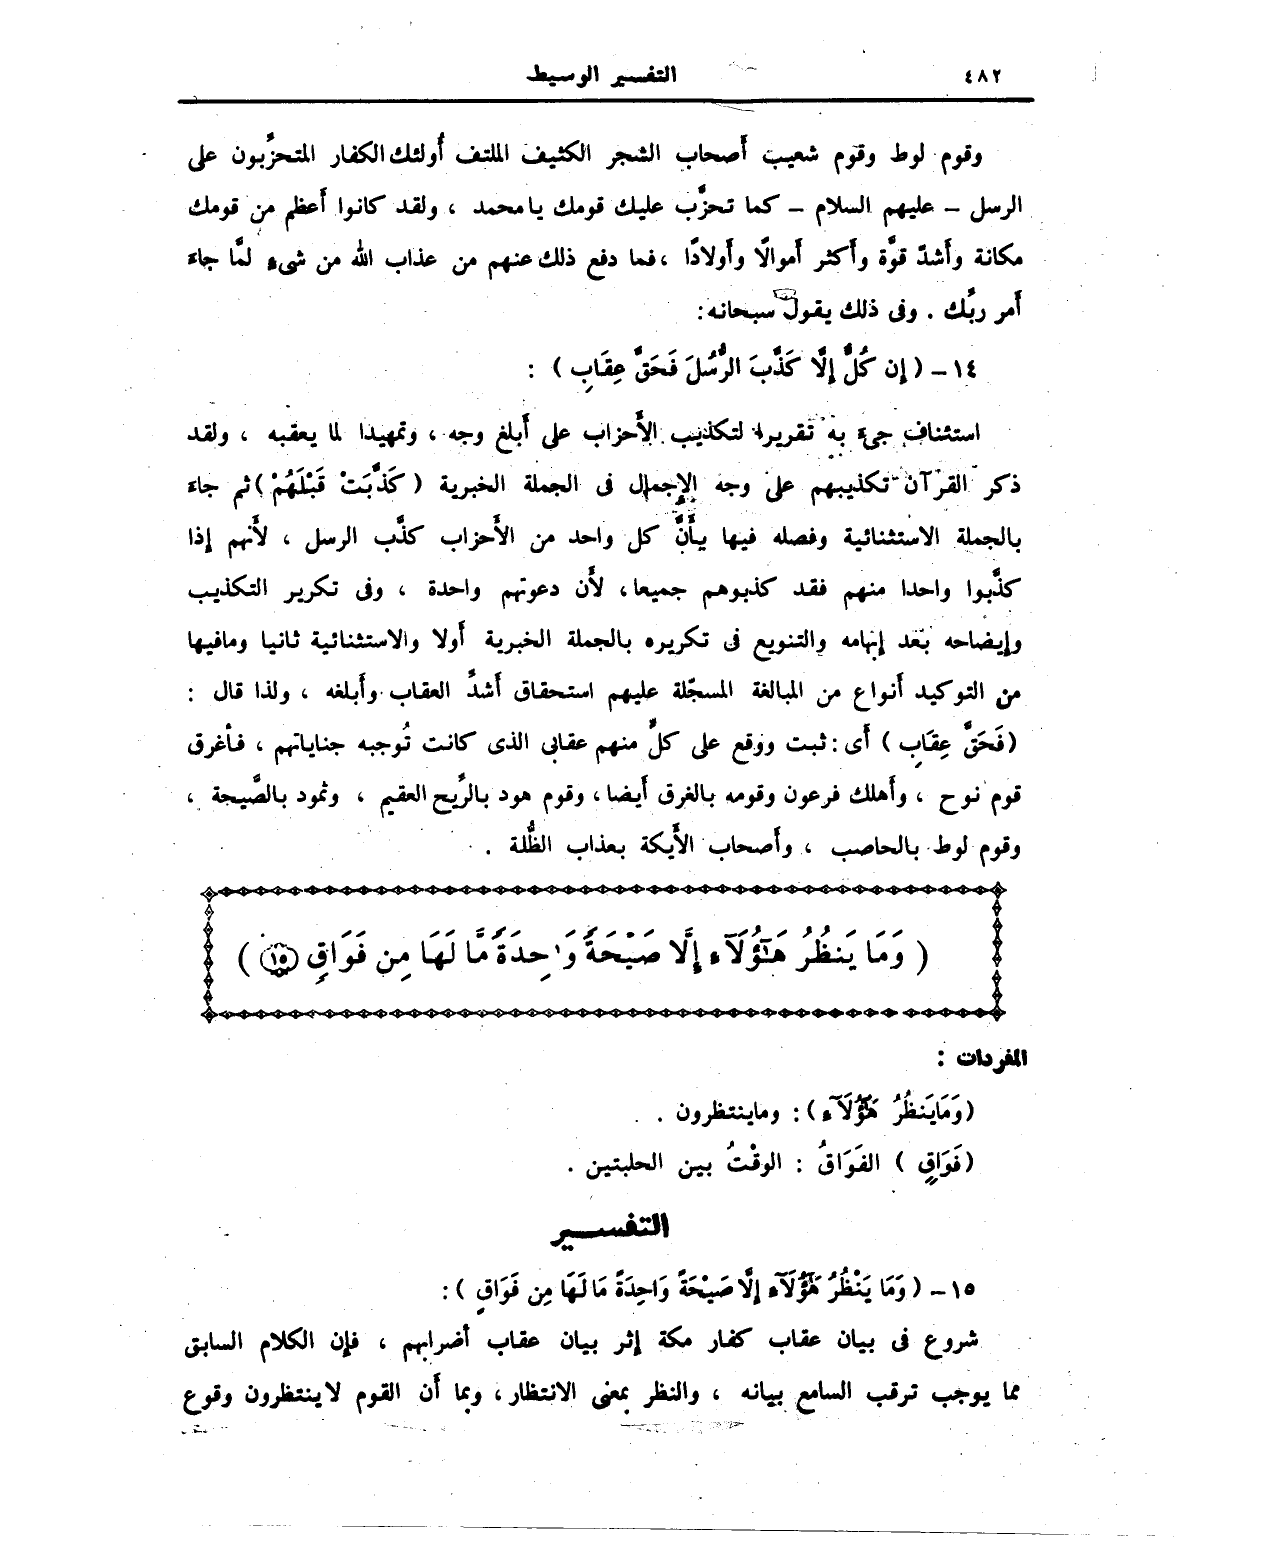 ٤٨٢ التفسير الوسيط
وقوم لوط وقوم شعيب أصحاب الشجر الكثيف الملتف أُولئك الكفار المتحزِّبون على
الرسل – عليهم السلام – كما تحزَّب عليك قومك يا محمد ، ولقد كانوا أَعظم من قومك
مكانة وأَشدّ قوَّة وأَكثر أَموالًا وأَولادًا ، فما دفع ذلك عنهم من عذاب الله من شىء لمَّا جاءَ
أَمر ربِّك . وفى ذلك يقول سبحانه :
١٤ – ( إِن كُلٌّ إِلَّا كَذَّبَ الرُّسُلَ فَحَقَّ عِقَابِ ) :
استئناف جىء به تقريرا لتكذيب الأَحزاب على أَبلغ وجه ، وتمهيدا لما يعقبه ، ولقد
ذكر القرآن تكذيبهم على وجه الإِجمال فى الجملة الخبرية ( كَذَّبَتْ قَبْلَهُمْ ) ثم جاءَ
بالجملة الاستثنائية وفصله فيها بأَنَّ كل واحد من الأَحزاب كذَّب الرسل ، لأَنهم إِذا
كذَّبوا واحدا منهم فقد كذبوهم جميعا ، لأَن دعوتهم واحدة ، وفى تكرير التكذيب
وإيضاحه بعد إبهامه والتنويع فى تكريره بالجملة الخبرية أَولا والاستثنائية ثانيا ومافيها
من التوكيد أَنواع من المبالغة المسجّلة عليهم استحقاق أَشدِّ العقاب وأَبلغه ، ولذا قال :
( فَحَقَّ عِقَابِ ) أَى : ثبت ووقع على كلٍّ منهم عقابى الذى كانت تُوجبه جناياتهم ، فأَغرق
قوم نوح ، وأَهلك فرعون وقومه بالغرق أَيضا ، وقوم هود بالرِّيح العقيم ، وثمود بالصَّيحة ،
وقوم لوط بالحاصب ، وأَصحاب الأَيكة بعذاب الظُّلة .
( وَمَا يَنظُرُ هَٰٓؤُلَآءِ إِلَّا صَيْحَةً وَٰحِدَةً مَّا لَهَا مِن فَوَاقٍ ١٥ )
المفردات :
( وَمَا يَنظُرُ هَٰٓؤُلَآءِ ) : وماينتظرون .
( فَوَاقٍ ) الفَوَاقُ : الوقْتُ بين الحلبتين .
التفسير
١٥ – ( وَمَا يَنْظُرُ هَٰٓؤُلَآءِ إِلَّا صَيْحَةً وَاحِدَةً مَا لَهَا مِن فَوَاقٍ ) :
شروع فى بيان عقاب كفار مكة إثر بيان عقاب أضرابهم ، فإن الكلام السابق
مما يوجب ترقب السامع بيانه ، والنظر بمعنى الانتظار ، وبما أن القوم لاينتظرون وقوع